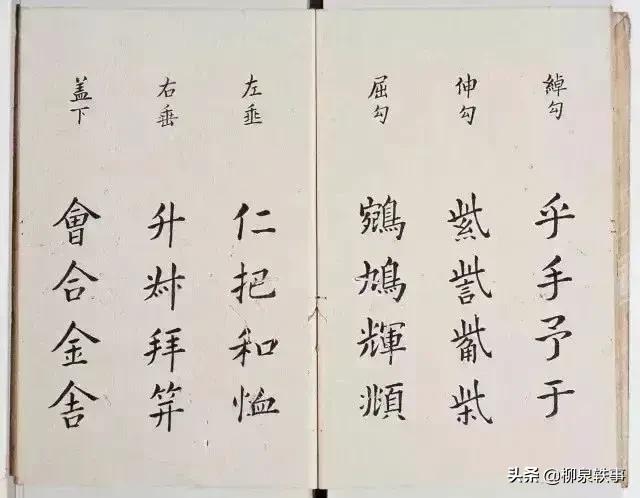 綽勾 乎手予于
伸勾 紫訾觜柴
屈勾 鵷鳩輝頫
左垂 仁把和恤
右垂 升拜笄
盖下 會合金舍
头条 @柳泉轶事